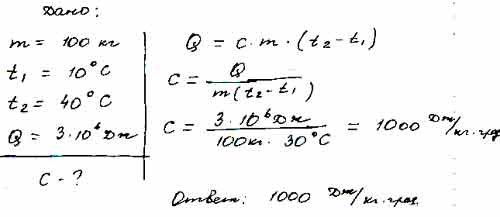 Дано:
m = 100 кг
t₁ = 10°C
t₂ = 40°C
Q = 3·10⁶ Дж
c - ?
Q = c·m·(t₂-t₁)
c = Q / m(t₂-t₁)
c = 3·10⁶ Дж / 100кг·30°C = 1000 Дж/кг·град
Ответ: 1000 Дж/кг·град